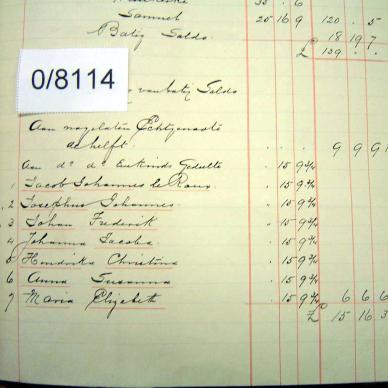 Samuel 20 16 9 120 . 5
Batig Saldo. 18 19 7
£ 139 . .
0/8114
van batig Saldo
Aan nagelaten Echtgenoote
de helft. . . 9 9 9
Aan do do Eenkinds Gedeelte . 15 9¾
1 Jacob Johannes le Roux . 15 9¾
2 Josephus Johannes . 15 9¾
3 Johan Frederik . 15 9¾
4 Johanna Jacoba . 15 9¾
5 Hendrika Christina . 15 9¾
6 Anna Susanna . 15 9¾
7 Maria Elizabeth . 15 9¾ 6 6 6
£ 15 16 3